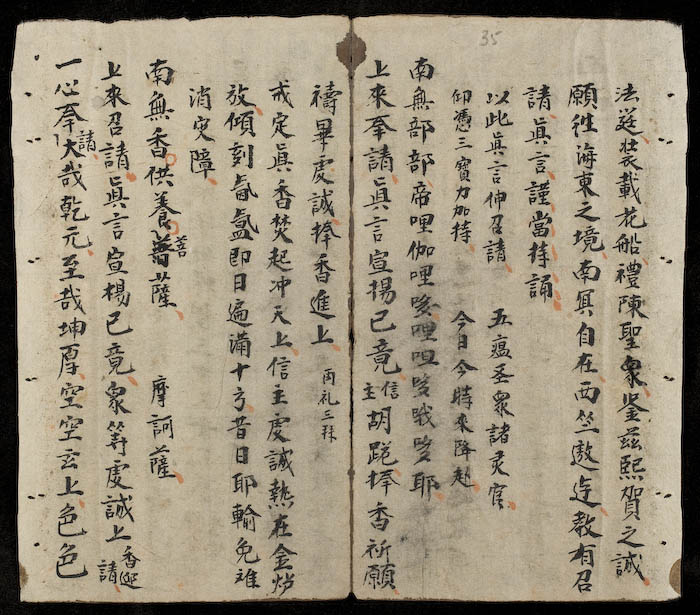 35
法筵裝載花船禮陳聖衆鉴兹熙賀之誠
願徃海東之境南㝠自在西竺遨逰教有召
請眞言謹當持誦
以此眞言伸召請 五瘟圣衆諸灵官
仰憑三寶力加持 今日今時來降赴
南無部部帝哩伽哩哆哩呾哆哦哆耶
上來奉請眞言宣揚已竟信主胡跪捧香祈願
禱畢虔誠捧香進上 丙礼三拜
戒定眞香焚起冲天上信主虔誠熱在金炉
放傾刻氤氳即日遍滿十方昔日耶輸免难
消灾障
南無香供養菩薩 摩訶薩
上來召請眞言宣楊已竟衆等虔誠上香迎請
一心奉請大哉乾元至哉坤厚空空玄上色色